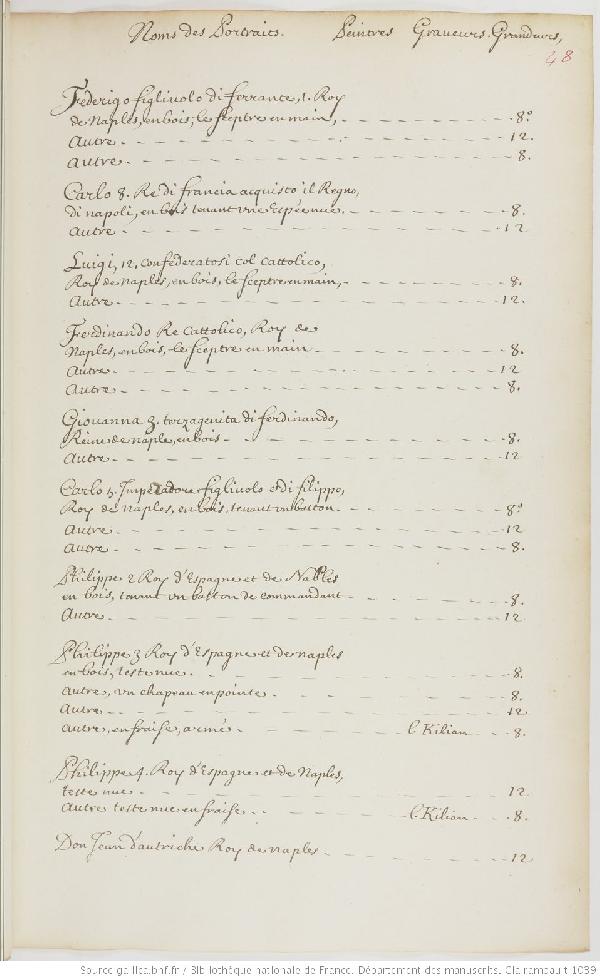 Noms des Portraits. Peintres Graveurs. Grandeurs,
48
Federigo figliuolo di ferrante, 1. Roy
de Naples, en bois, le sceptre en main, 8º
autre 12.
autre 8.
Carlo 8. Re di francia acquisto il Regno,
di napoli, en bois tenant une Espée nue. 8.
autre 12
Luigi, 12, confederatosi col cattolico,
Roy de naples, en bois, le sceptre en main, 8.
Autre 12.
Ferdinando Re Cattolico, Roy de
Naples, en bois, le sceptre en main 8.
autre 12
autre 8.
Giovanna 3. terzagenita di ferdinando,
Reine de naple, en bois 8.
autre 12
Carlo 5. Imperadore figliuolo di filippo,
Roy de naples, en bois, tenant un baton 8º
autre 12
autre 8.
Philippe 2 Roy d'Espagne et de Naples
en bois, tenant un baston de commandant 8.
autre 12
Philippe 3 Roy d'Espagne et de naples
en bois, teste nue 8.
autre, un chapeau en pointe 8.
autre 12
autre, en fraise, armé l. Kilian 8.
Philippe 4. Roy d'Espagne et de Naples,
teste nue 12.
autre teste nue en fraise l. Kilian 8.
Don Jean d'autriche Roy de naples 12
Source gallica.bnf.fr / Bibliothèque nationale de France. Département des manuscrits. Clairambault 1039